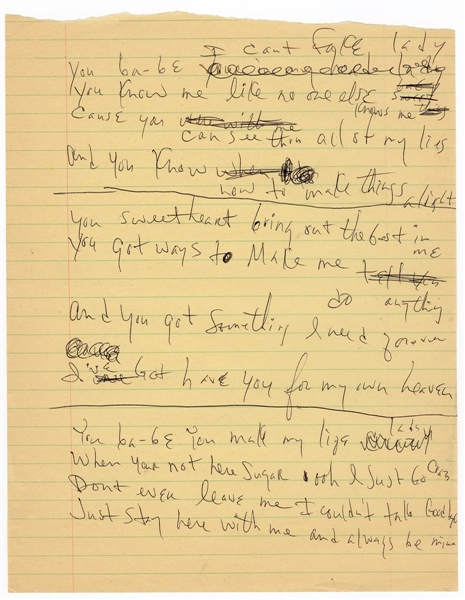 I cant fake lady
You ba-bE
You Know me like no one else
Knows me
Cause you can see thru all of my lies
And you Know
how to make things alright
You sweetheart bring out the best in me
You got ways to Make me
do anything
And you got something I need forever
I've Got have you for my own heaven
You ba-bE You make my life
When your not here Sugar ooh I Just Go Crazy
Dont even leave me I couldn't take Goodbye
Just stay here with me and always be mine